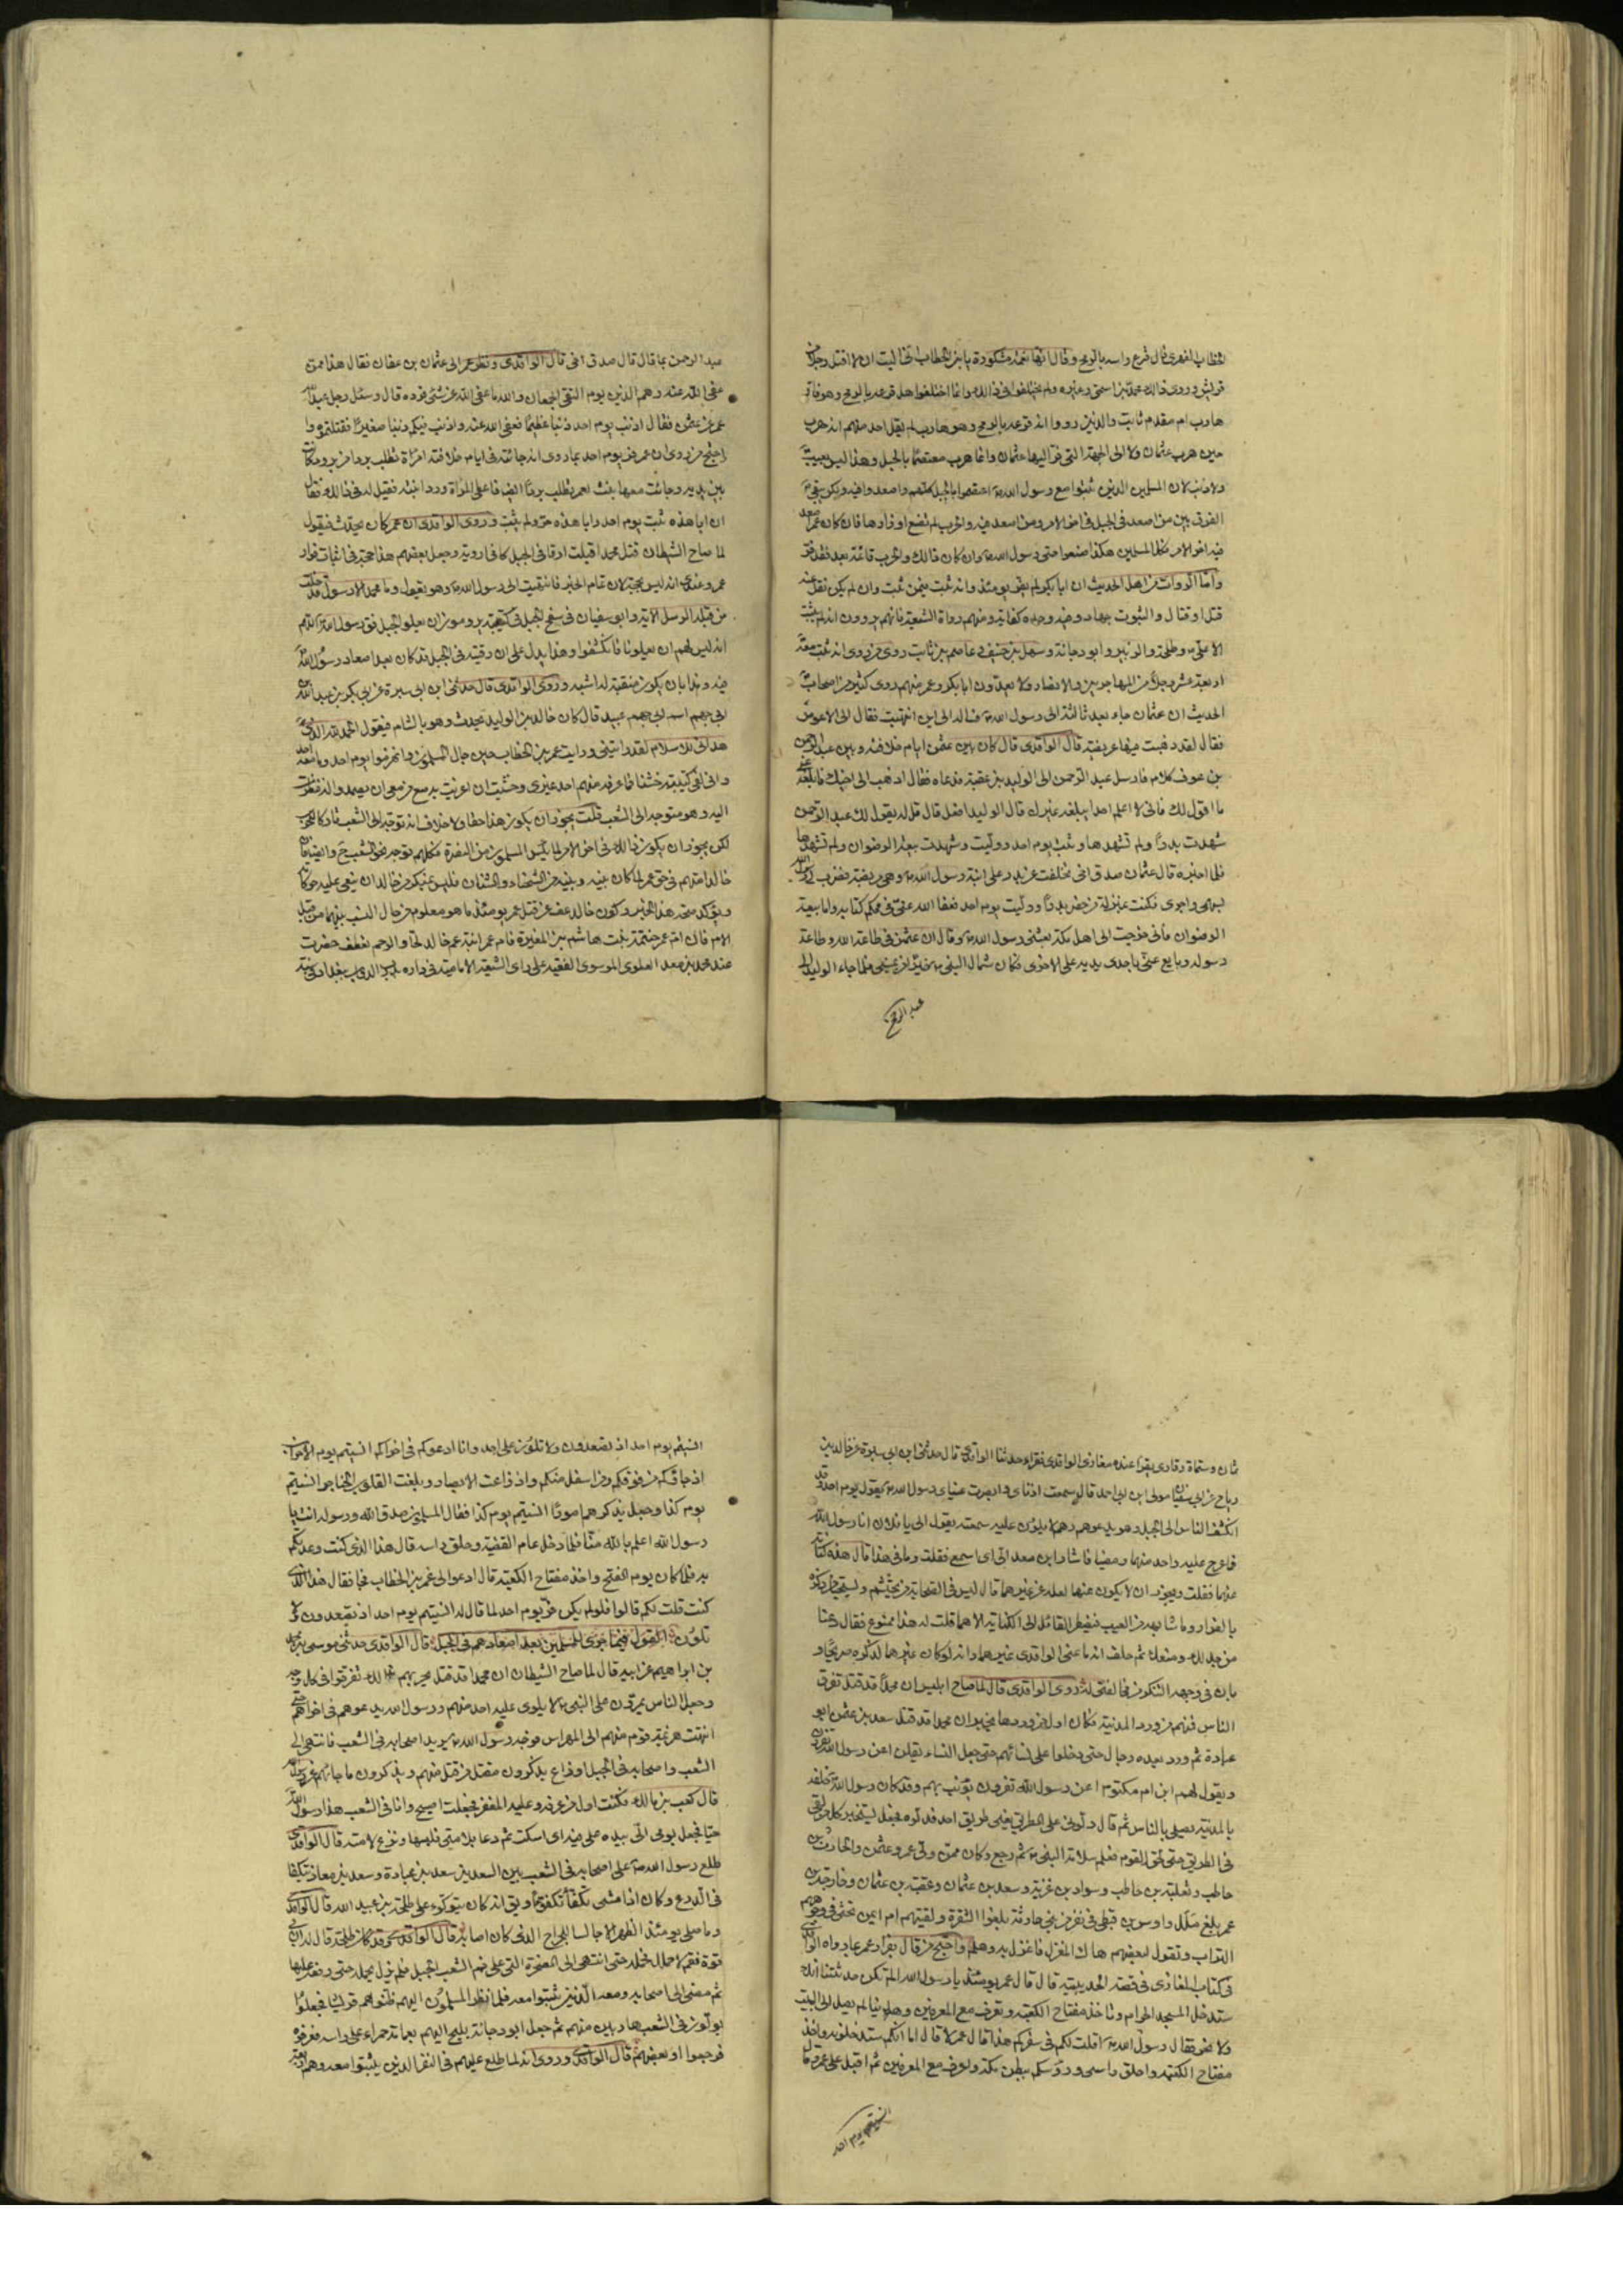 الخطاب الفهرى قال قرع راسه بالرمح وقال انها نعمة مشكورة يابن الخطاب انى اليت ان لا اقتل رجلا من
قريش وروى ذالك محمد بن اسحق وغيره ولم يختلفوا فى ذالك وانما اختلفوا هل قرعه بالرمح وهو فار
هارب ام مقدم ثابت والذين رووا انه قرعه بالرمح وهو هارب لم يقل احد منهم انه هرب
حين هرب عثمان ولا الى الجهة التى فر اليها عثمان وانما هرب معتصما بالجبل وهذا ليس بعيب
ولا ذنب لان المسلمين الذين ثبتوا مع رسول الله ص اعتصموا بالجبل كلهم واصعدوا فيه ولكن يبقى
الفرق بين من اصعد فى الجبل فى اخر الامر ومن اصعد فيه والحرب لم تضع اوزارها فان كان عمر اصعد
فيه اخر الامر فكل المسلمين هكذا صنعوا حتى رسول الله ص وان كان ذالك والحرب قائمة بعد فقد فر
واما الروات من اهل الحديث ان ابا بكر لم يفر يومئذ وانه ثبت فيمن ثبت وان لم يكن نقل عنه
قتل او قتال والثبوت جهاد وفيه وحده كفاية ومنهم رواة الشيعة فانهم يروون انه لم يثبت
الا على ع وطلحة والزبير وابو دجانة وسهل بن حنيف وعاصم بن ثابت روى من روى انه ثبت معه
اربعة عشر رجلا من المهاجرين والانصار ولا يعدون ابا بكر وعمر منهم روى كثير من اصحاب
الحديث ان عثمان جاء بعد ثالثة الى رسول الله ص فساله الى اين انتهيت فقال الى الاعوص
فقال لقد ذهبت فيها عريضة قال الواقدى قال كان بين عثمن ايام خلافته وبين عبد الرحمن
بن عوف كلام فارسل عبد الرحمن الى الوليد بن عقبة فدعاه فقال اذهب الى اخيك فابلغه عنى
ما اقول لك فانى لا اعلم احدا يبلغه غيرك قال الوليد افعل قال قل له يقول لك عبد الرحمن
شهدت بدرا ولم تشهدها وثبت يوم احد ووليت وشهدت بيعة الرضوان ولم تشهدها
فلما اخبره قال عثمان صدق اخى تخلفت عن بدر على ابنة رسول الله ص وهى مريضة فضرب لى رسول الله
بسهمى واجرى فكنت بمنزلة من حضر بدرا ووليت يوم احد فعفا الله عنى فى محكم كتابه واما بيعة
الرضوان فانى خرجت الى اهل مكة بعثنى رسول الله ص وقال ان عثمن فى طاعة الله وطاعة
رسوله وبايع عنى باحدى يديه على الاخرى فكان شمال النبى ص خيرا من يمينى فلما جاء الوليد الى
عبد الرحمن
عبد الرحمن بما قال قال صدق اخى قال الواقدى ونظر عمر الى عثمان بن عفان فقال هذا ممن
عفى الله عنه وهم الذين يوم التقى الجمعان والله ما عفى الله عن شئ فرده قال وسئل رجل عبد الله بن
عمر عن عثمن فقال اذنب يوم احد ذنبا عظيما فعفى الله عنه واذنب فيكم ذنبا صغيرا فقتلتموه وا
احتج من روى ان عمر فر يوم احد بما روى انه جائته فى ايام خلافته امراة تطلب بردا من برود كانت
بين يديه وجائت معها بنت لعمر تطلب بردا ايضا فاعطى المراة ورد ابنته فقيل له فى ذالك فقال
ان ابا هذه ثبت يوم احد وابا هذه فر ولم يثبت وروى الواقدى ان عمر كان يحدث فيقول
لما صاح الشيطان قتل محمد اقبلت ارقا فى الجبل كانى اروية وجعل بعضهم هذا حجة فى اثبات فرار
عمر وعندى انه ليس بحجة لان تمام الخبر فانتهيت الى رسول الله ص وهو يقول وما محمد الا رسول قد خلت
من قبله الرسل الاية وابو سفيان فى سفح الجبل فى كتيبته يرومون ان يعلوا الجبل فق رسول الله اللهم
انه ليس لهم ان يعلونا فانكشفوا وهذا يدل على ان رقيه فى الجبل قد كان بعد اصعاد رسول الله
فيه وهذا بان يكون منقبة له اشبه وروى الواقدى قال حدثنى ابن ابى سبرة عن ابى بكر بن عبد الله بن
ابى جهم اسم ابى جهم عبيد قال كان خالد بن الوليد يحدث وهو بالشام فيقول الحمد لله الذى
هدانى للاسلام لقد رايتنى ورايت عمر بن الخطاب حين جال المسلمون وانهزموا يوم احد وما معه احد
وانى لفى كتيبة خشنا فما عرفه منهم احد غيرى وخشيت ان اغريت به من معى ان يصمدوا له فنظرت
اليه وهو متوجه الى الشعب قلت يجوز ان يكون هذا حقا ولا خلاف انه توجه الى الشعب تاركا للحرب
لكن يجوز ان يكون ذالك فى اخر الامر لما يئس المسلمون من النصرة فكلهم توجه نحو الشعب ح وايضا فان
خالدا متهم فى حق عمر لما كان بينه وبينه من الشحناء والشنان فليس بمنكر من خالد ان ينعى عليه حركاته
ويؤكد صحة هذا الخبر وكون خالد عف عن قتل عمر يومئذ ما هو معلوم من حال النسب بينهما من قبل
الام فان ام عمر حنتمة بنت هاشم بن المغيرة فام عمر ابنة عم خالد لحا والرحم تعطف حضرت
عند محمد بن معد العلوى الموسوى الفقيه على راى الشيعة الامامية فى داره بدرب الدواب ببغداد فى سنة
ثمان وستماة وقارى يقرا عنده مغازى الواقدى فقراء حدثنا الواقدى قال حدثنى ابن ابى سبرة عن خالد بن
رباح عن ابى سفيان مولى ابن ابى احمد قال سمعت اذناى وابصرت عيناى رسول الله ص يقول يوم احد وقد
انكشف الناس الى الجبل وهو يدعوهم وهم لا يلون عليه سمعته يقول الى يا فلان انا رسول الله
فما عرج عليه واحد منهما ومضيا فاشار ابن معد الى اى اسمع فقلت وما فى هذا قال هذه كناية
عنهما فقلت ويجوز ان لا يكون عنهما لعله عن غيرهما قال ليس فى الصحابة من يحتشم ويستحيى من ذكره
بالفرار وما شابهه من العيب فيضطر القائل الى الكناية الا هما قلت له هذا ممنوع فقال دعنا
من جدلك ومنعك ثم حلف انه ما عنى الواقدى غيرهما وانه لو كان غيرهما لذكره صريحا و
بان فى وجهه التنكر من مخالفتى له روى الواقدى قال لما صاح ابليس ان محمدا قد قتل تفرق
الناس فمنهم من ورد المدينة فكان اول من وردها يخبر ان محمدا قد قتل سعد بن عثمن ابو
عبادة ثم ورد بعده رجال حتى دخلوا على نسائهم حتى جعل النساء يقلن اعن رسول الله تفرون
ويقول لهم ابن ام مكتوم اعن رسول الله تفرون يؤنب بهم وقد كان رسول الله خلفه
بالمدينة يصلى بالناس ثم قال دلونى على الطريق يعنى طريق احد فدلوه فجعل يستخبر كل من لقى
فى الطريق حتى لحق القوم فعلم سلامة النبى ص ثم رجع وكان ممن ولى عمر وعثمن والحارث بن
حاطب وثعلبة بن حاطب وسواد بن غزية وسعد بن عثمان وعقبة بن عثمان وخارجة بن
عمر بلغ ملل واوس بن قيظى فى نفر من بنى حارثة بلغوا الشقرة ولقيتهم ام ايمن تحثى فى وجوههم
التراب وتقول لبعضهم هاك المغزل فاغزل به وهلم واحتج من قال بفرار عمر بما رواه الواقدى
فى كتاب المغازى فى قصة الحديبية قال قال عمر يومئذ يا رسول الله الم تكن حدثتنا انك
ستدخل المسجد الحرام وتاخذ مفتاح الكعبة وتعرف مع المعرفين وهدينا لم يصل الى البيت
ولا نحر فقال رسول الله ص اقلت لكم فى سفركم هذا قال عمر لا قال اما انكم ستدخلونه واخذ
مفتاح الكعبة واحلق راسى ورؤسكم ببطن مكة واعرف مع المعرفين ثم اقبل على عمر وقال
انسيتم يوم احد
انسيتم يوم احد اذ تصعدون ولا تلون على احد وانا ادعوكم فى اخراكم انسيتم يوم الاحزاب
اذ جاؤكم من فوقكم ومن اسفل منكم واذ زاغت الابصار وبلغت القلوب الحناجر انسيتم
يوم كذا وجعل يذكرهم امورا انسيتم يوم كذا فقال المسلمون صدق الله ورسوله انت يا
رسول الله اعلم بالله منا فلما دخل عام القضية وحلق راسه قال هذا الذى كنت وعدتكم
به فلما كان يوم الفتح واخذ مفتاح الكعبة قال ادعوا الى عمر بن الخطاب فجا فقال هذا الذى
كنت قلت لكم قالوا فلو لم يكن فر يوم احد لما قال له انسيتم يوم احد اذ تصعدون ولا
تلون القول فيما جرى للمسلمين بعد اصعادهم فى الجبل قال الواقدى حدثنى موسى بن محمد
بن ابراهيم عن ابيه قال لما صاح الشيطان ان محمدا قد قتل يحزنهم ذالك تفرقوا فى كل وجه
وجعل الناس يمرون على النبى ص لا يلوى عليه احد منهم ورسول الله يدعوهم فى اخراهم حتى
انتهت هزيمة قوم منهم الى المهراس فتوجه رسول الله ص يريد اصحابه فى الشعب فانتهى الى
الشعب واصحابه فى الجبل اوزاع يذكرون مقتل من قتل منهم ويذكرون ما جائهم عن رسول الله
قال كعب بن مالك فكنت اول من عرفه وعليه المغفر فجعلت اصيح وانا فى الشعب هذا رسول الله
حيا فجعل يومى الى بيده على فيه اى اسكت ثم دعا بلامتى فلبسها ونزع لامته قال الواقدى
طلع رسول الله ص على اصحابه فى الشعب بين السعدين سعد بن عبادة وسعد بن معاذ يتكفا
فى الدرع وكان اذا مشى تكفا تكفؤا ويق انه كان يتوكوء على طلحة بن عبيد الله قال الواقدى
وما صلى يومئذ الظهر الا جالسا للجراح الذى كان اصابه قال الواقدى وقد كان طلحة قال له ان بى
قوة فقم لاحملك فحمله حتى انتهى الى الصخرة التى على فم الشعب الجبل فلم يزل يحمله حتى رفعه عليها
ثم مضى الى اصحابه ومعه الذين ثبتوا معه فلما نظر المسلمون اليهم ظنوهم قريشا فجعلوا
يولون فى الشعب هاربين منهم ثم جعل ابو دجانة يليح اليهم بعمامة حمراء على راسه فعرفوه
فرجعوا او بعضهم قال الواقدى وروى انه لما طلع عليهم فى النفر الذين ثبتوا معه وهم اربعة